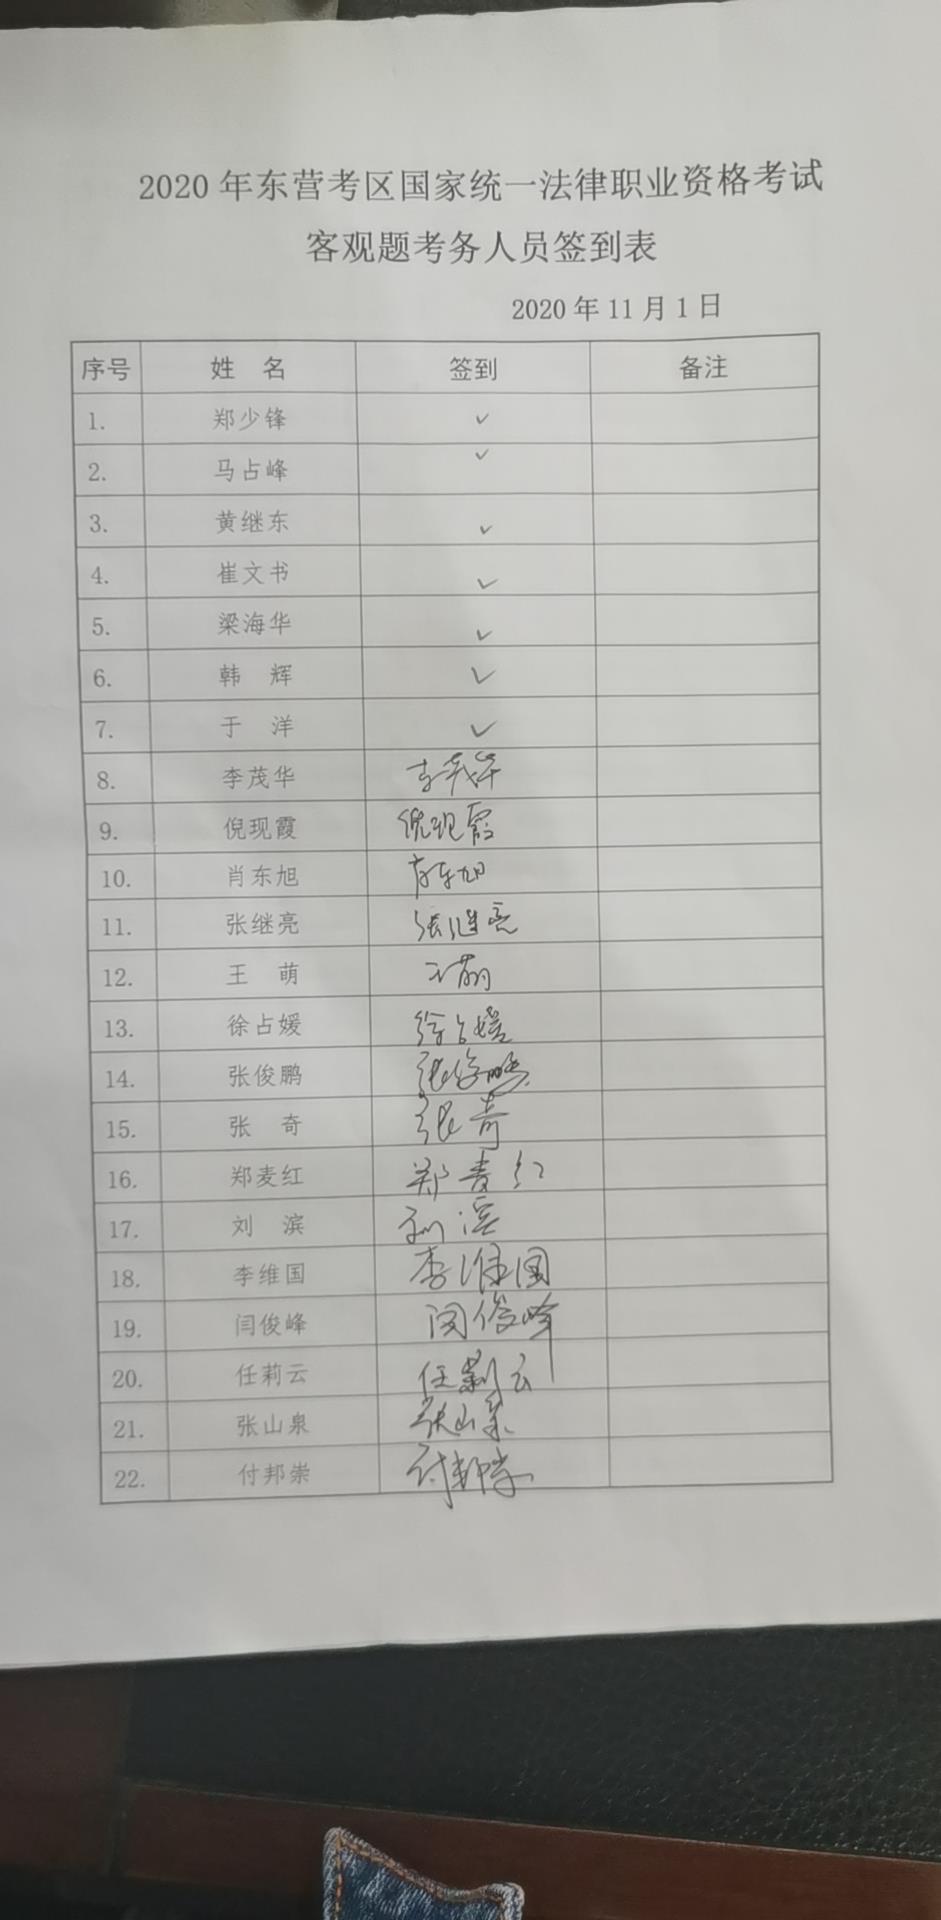 2020年东营考区国家统一法律职业资格考试
客观题考务人员签到表
2020年11月1日
序号 姓 名 签到 备注
1. 郑少锋 ✓
2. 马占峰 ✓
3. 黄继东 ✓
4. 崔文书 ✓
5. 梁海华 ✓
6. 韩 辉 ✓
7. 于 洋 ✓
8. 李茂华 李茂华
9. 倪现霞 倪现霞
10. 肖东旭 肖东旭
11. 张继亮 张继亮
12. 王 萌 王萌
13. 徐占媛 徐占媛
14. 张俊鹏 张俊鹏
15. 张 奇 张奇
16. 郑麦红 郑麦红
17. 刘 滨 刘滨
18. 李维国 李维国
19. 闫俊峰 闫俊峰
20. 任莉云 任莉云
21. 张山泉 张山泉
22. 付邦崇 付邦崇